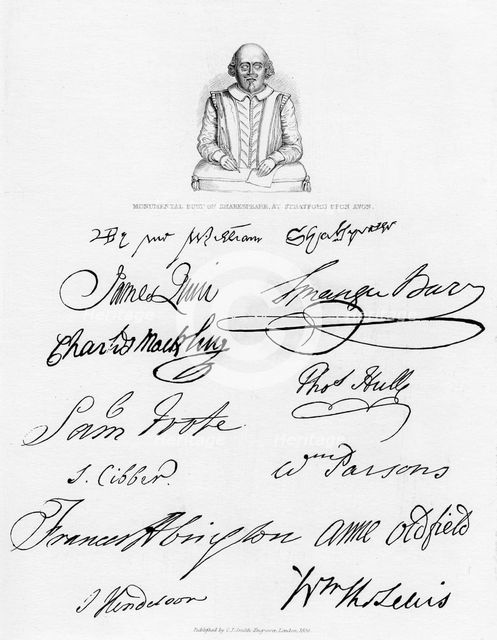 MONUMENTAL BUST OF SHAKESPEARE, AT STRATFORD UPON AVON.
By me William Shakspeare
James Quin
Spranger Barry
Charles Macklin
Thos Hull
Sam Foote
S. Cibber.
Wm Parsons
Frances Abington
anne oldfield
J Henderson
Wm Thos Lewis
Published by C. J. Smith Engraver, London,